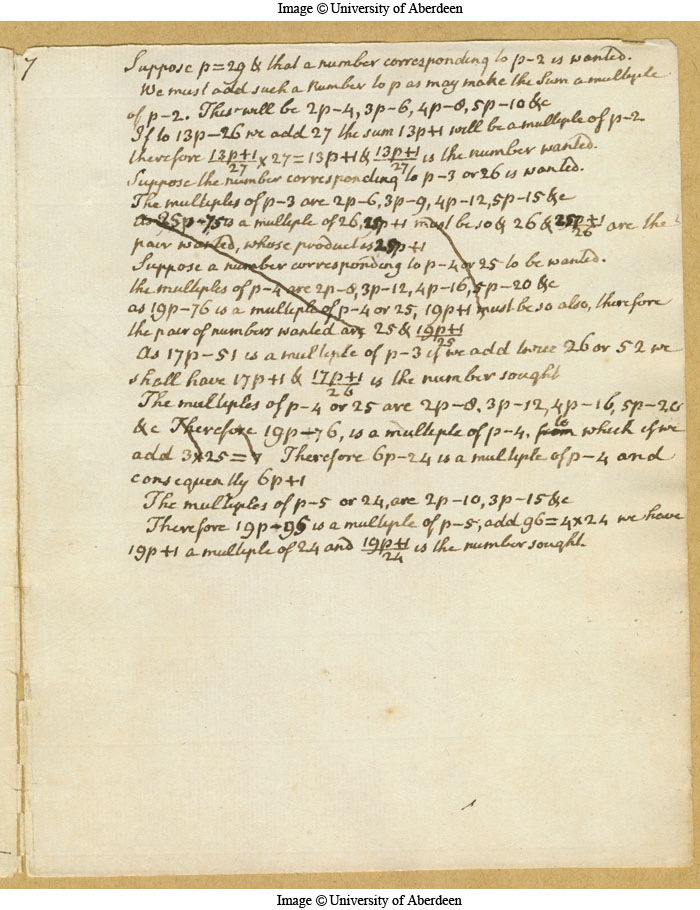 Image © University of Aberdeen
7
Suppose p=29 & that a number corresponding to p-2 is wanted.
We must add such a Number to p as may make the Sum a multiple
of p-2. These will be 2p-4, 3p-6, 4p-8, 5p-10 &c
If to 13p-26 we add 27 the sum 13p+1 will be a multiple of p-2
therefore 13p+1/27 × 27 = 13p+1 & 13p+1/27 is the number wanted.
Suppose the number corresponding to p-3 or 26 is wanted.
The multiples of p-3 are 2p-6, 3p-9, 4p-12, 5p-15 &c
as 25p-75 is a multiple of 26, 25p+1 must be so & 26 & 25p+1/26 are the
pair wanted, whose product is 25p+1
Suppose a number corresponding to p-4 or 25 to be wanted.
the multiples of p-4 are 2p-8, 3p-12, 4p-16, 5p-20 &c
as 19p-76 is a multiple of p-4 or 25, 19p+1 must be so also, therefore
the pair of numbers wanted are 25 & 19p+1/25
As 17p-51 is a multiple of p-3 if we add twice 26 or 52 we
shall have 17p+1 & 17p+1/26 is the number sought
The multiples of p-4 or 25 are 2p-8. 3p-12, 4p-16, 5p-20
&c Therefore 19p-76, is a multiple of p-4. from to which if we
add 3×25=7 Therefore 6p-24 is a multiple of p-4 and
consequently 6p+1
The multiples of p-5 or 24, are 2p-10, 3p-15 &c
Therefore 19p-95 is a multiple of p-5, add 96=4×24 we have
19p+1 a multiple of 24 and 19p+1/24 is the number sought.
Image © University of Aberdeen